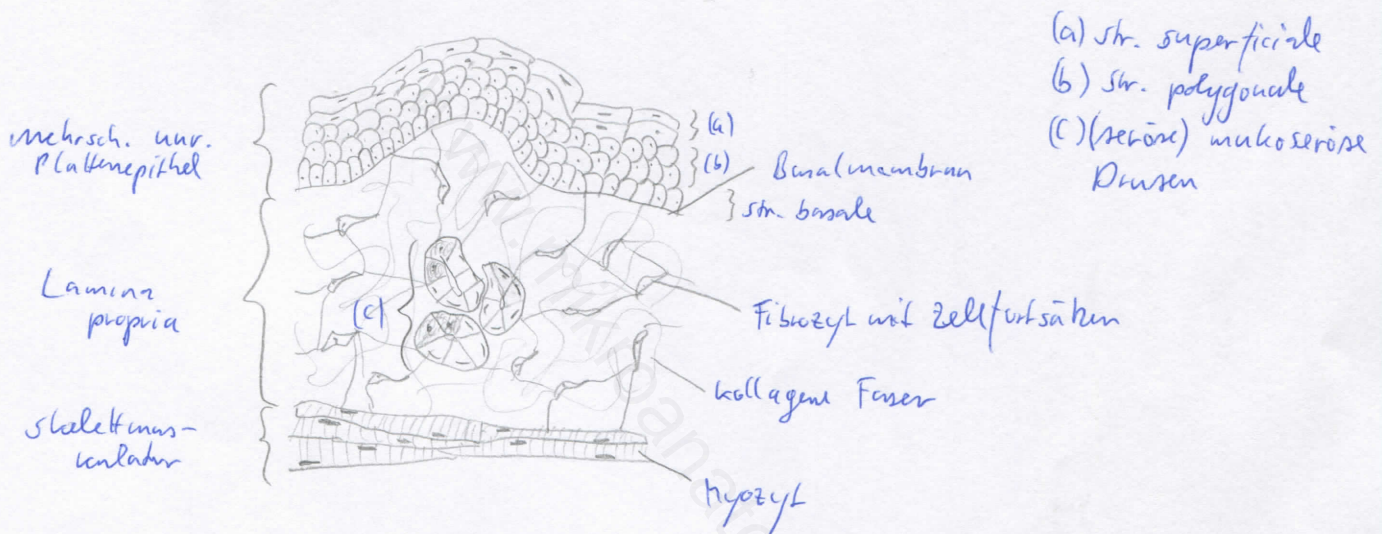 mehrsch. unv.
Plattenepithel
Lamina
propria
Skelettmus-
kulatur
(a)
(b)
(c)
Basalmembran
str. basale
Fibrozyt mit Zellfortsätzen
kollagene Faser
Myozyt
(a) str. superficiale
(b) str. polygonale
(c) (seröse) mukoseröse
Drüsen